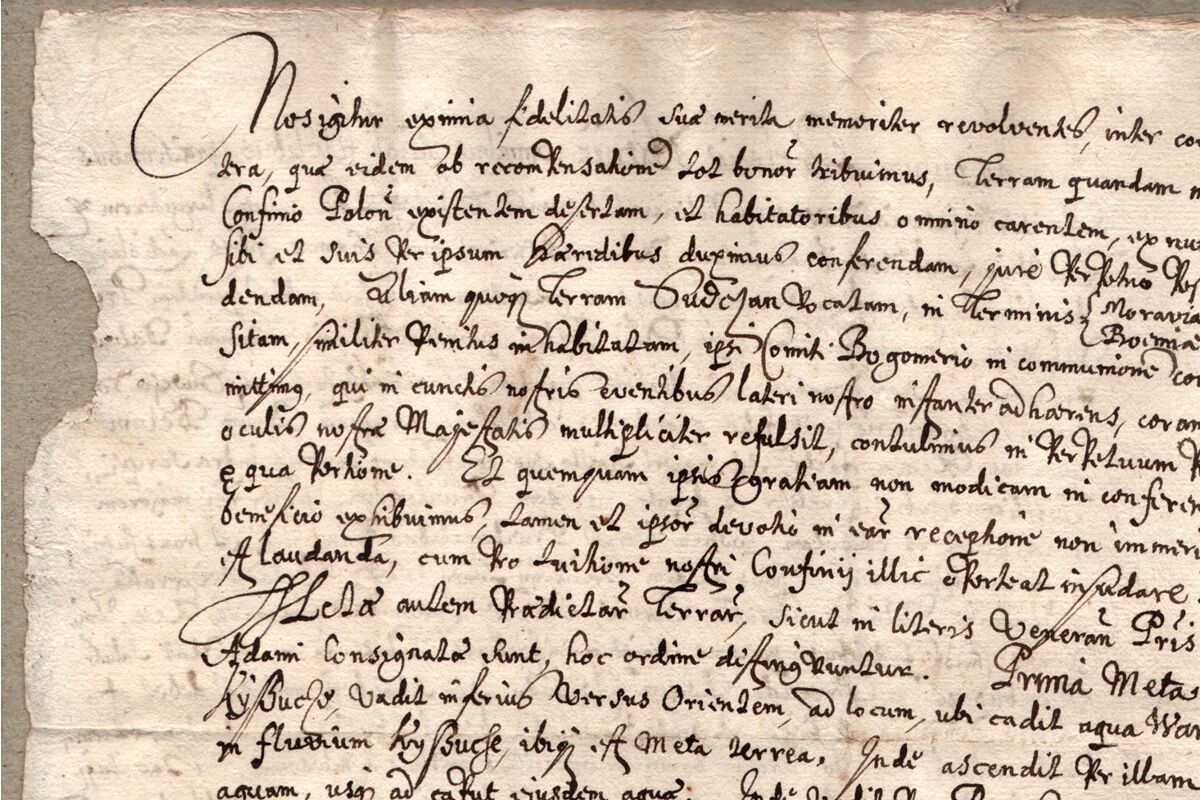 Nos igitur eximia fidelitatis suæ merita memoriter revolventes, inter
tera, quæ eidem ob recompensationē tot bonor̄ tribuimus, Terram quandam
Confinio Polon̄ existentem desertam, et habitatoribus omnino carentem, ex
sibi et suis Per ipsum Hæredibus duximus conferendam, jure Perpetuo
dendam, Aliam quoq̢ Terram Sudcjan Vocatam, in Terminis Moravia
Boemiæ
sitam, similiter Penitus inhabitatam, ipsi Comiti Bogomerio in communionē
mittimus, qui in cunctis nostris eventibus lateri nostro instanter adhærens, coram
oculis nostræ Majestatis multipliciter refulsit, contulimus in Perpetuum
qua Portione. Et quemquam ipsis gratiam non modicam in
beneficio exhibuimus, tamen et ipsor̄ devotio in ear̄ receptione non
est laudanda, cum Pro tuitione nostri Confinij illic oPorteat insudare
Metæ autem Prædictar̄ Terrar̄, sicut in literis Veneran̄ Pr̄is
Adami Consignatæ sunt, hoc ordine distingvuntur. Prima Meta
Kyssucze, vadit inferius Versus Orientem, ad locum, ubi cadit aqua
in fluvium Kyssucse, ibiq̢ est Meta terrea. Inde ascendit Per illam
aquam, usq̢ ad caput eiusdem aquæ. Inde